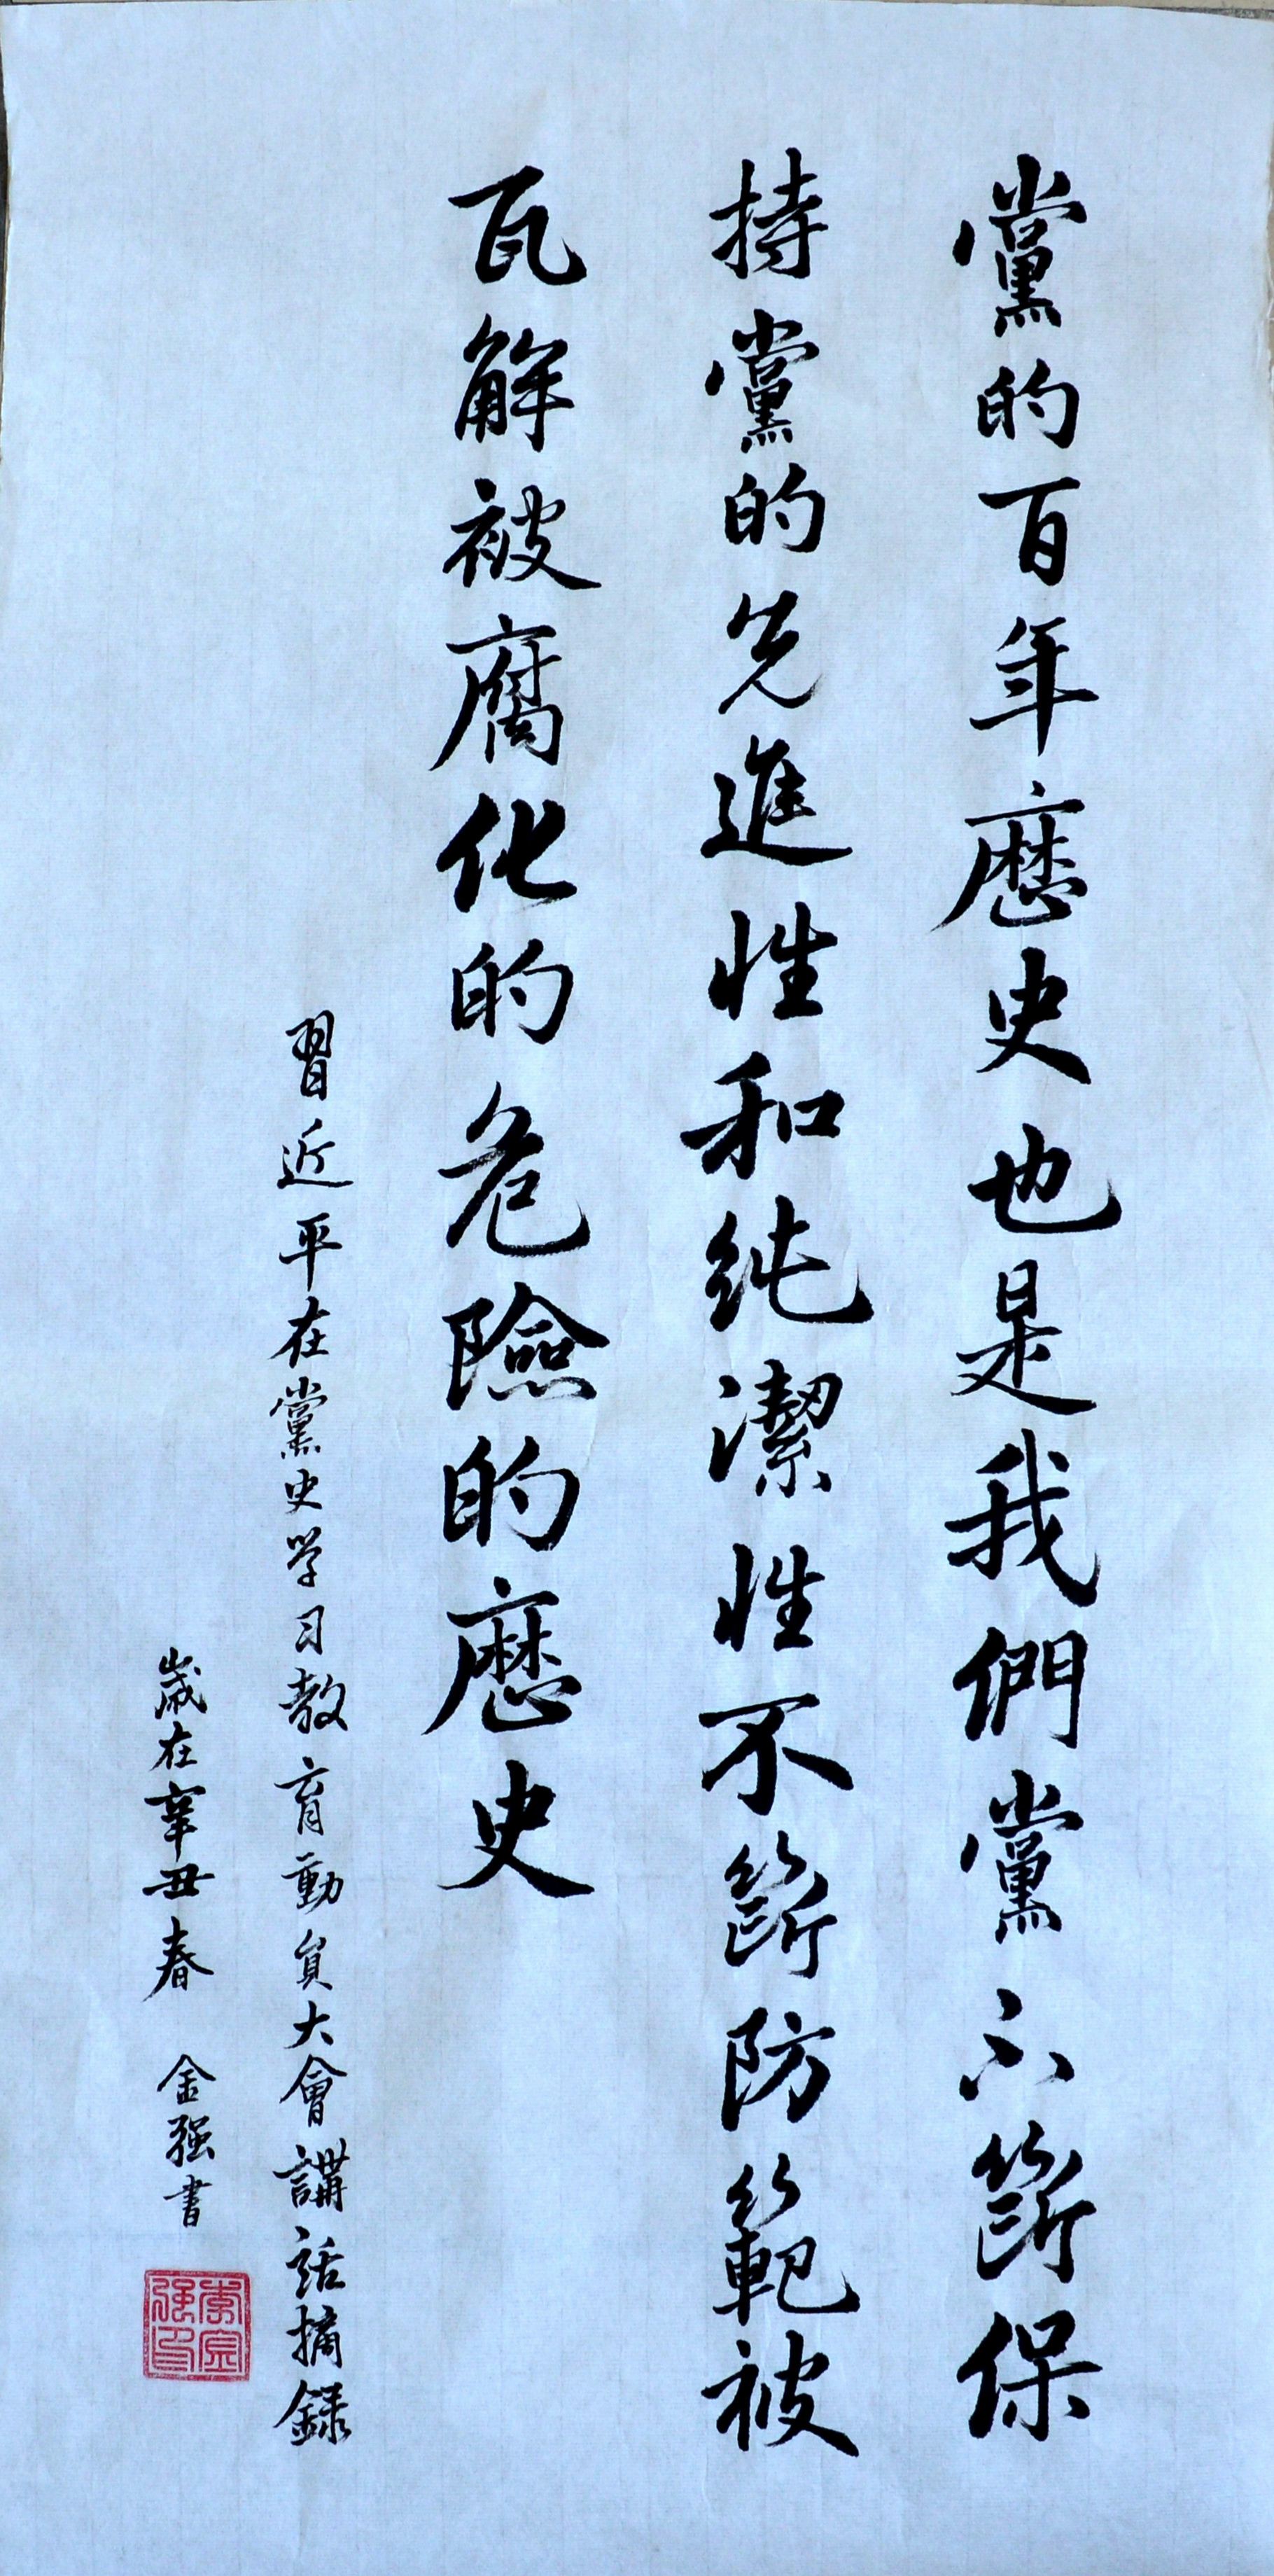 黨的百年歷史也是我們黨不斷保
持黨的先進性和純潔性不斷防範被
瓦解被腐化的危險的歷史
習近平在黨史学习教育動員大會講話摘録
歲在辛丑春 金强書